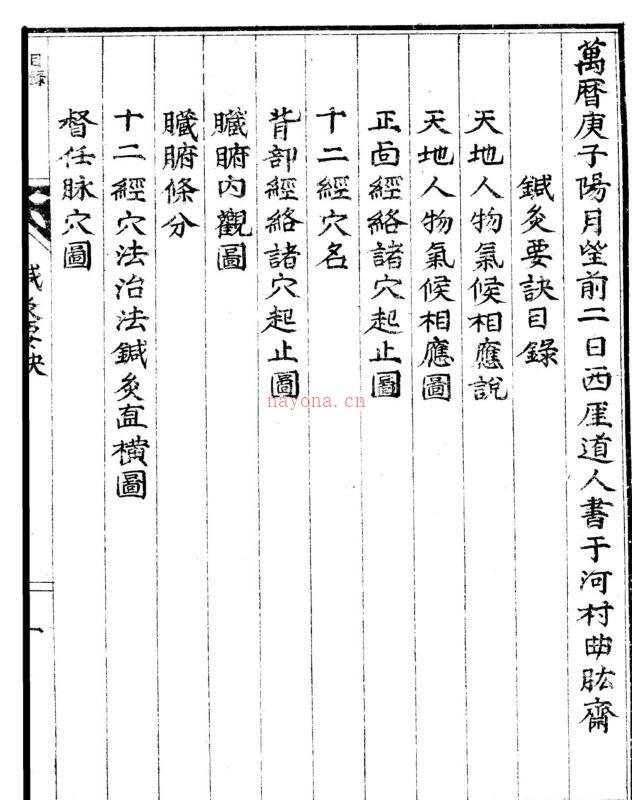 萬曆庚子陽月望前二日西厓道人書于河村曲肱齋
鍼灸要訣目錄
天地人物氣候相應說
天地人物氣候相應圖
正面經絡諸穴起止圖
十二經穴名
背部經絡諸穴起止圖
臟腑內觀圖
臟腑條分
十二經穴法治法鍼灸直橫圖
督任脉穴圖
目錄
鍼灸要訣
一
nayona.cn